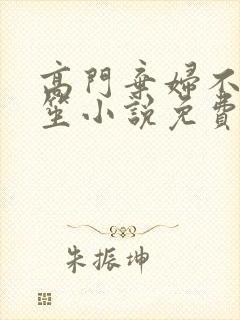 高門棄婦不
笙小說免費
朱振坤